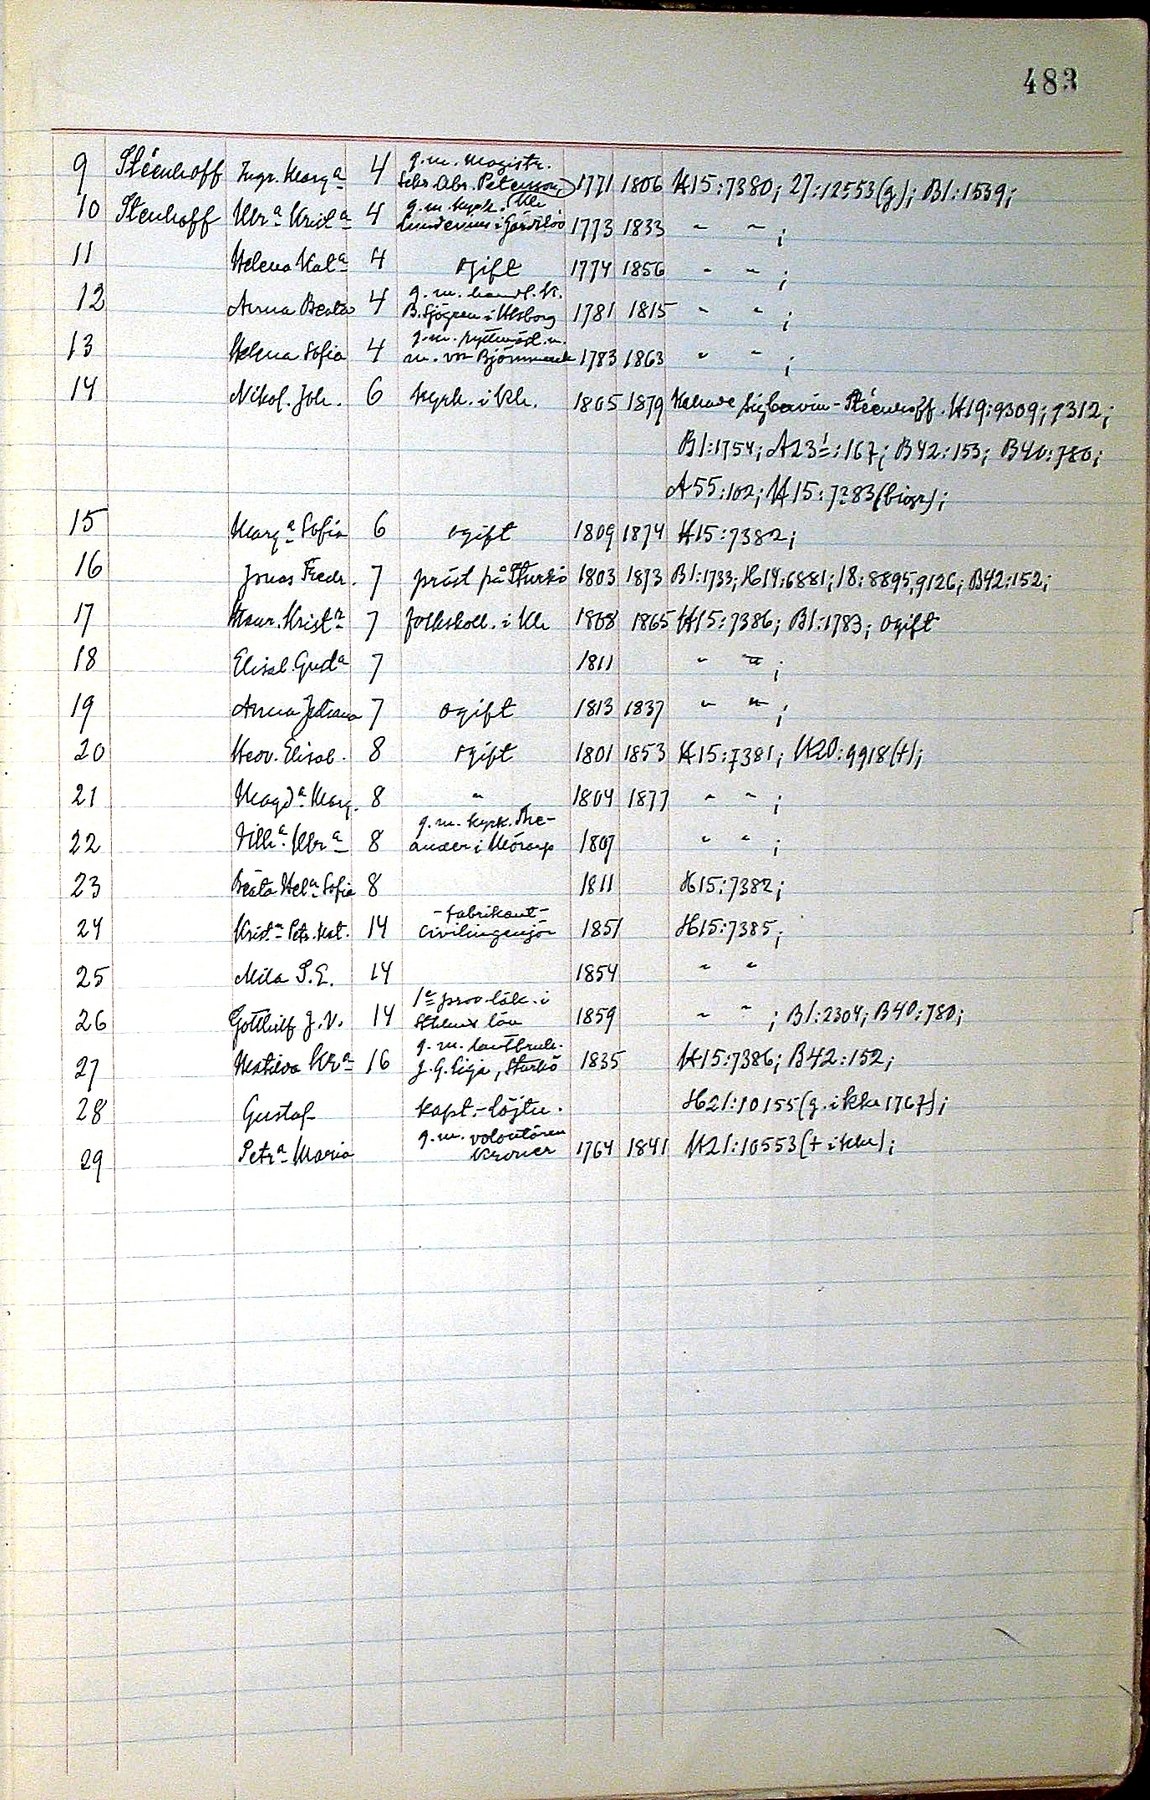 483
9 Stéenhoff Ingr. Marg.ª 4 g.m. magistr. Seb. Abr. Peterson 1771 1806 H15:7380; 27:12553(g); B1:1539;
10 Stenhoff Ulr.ª Krist.ª 4 g.m. kyrk. 1773 1833 " " ;
11 Helena Kat.ª 4 ogift 1774 1856 " " ;
12 Anna Beata 4 g.m. handl. K. B. Sjögren i Ulsborg 1781 1815 " " ;
13 Helena Sofia 4 g.m. ryttmäst. m. von Björnmarck 1783 1863 " " ;
14 Nikol. Joh. 6 kyrk. i Kh. 1805 1879 Kallade sig Stéenhoff. H19:9309; 9312;
B1:1754; A23¹:167; B42:153; B40:780;
A55:102; H15:7383(biogr);
15 Marg.ª Sofia 6 ogift 1809 1874 H15:7382;
16 Jonas Fredr. 7 präst på Sturkö 1803 1873 B1:1733; H14:6881; 18:8895, 9126; B42:152;
17 Krist.ª 7 folkskoll. i Kh 1808 1865 H15:7386; B1:1783; ogift
18 Elisab. Gud.ª 7 1811 " " ;
19 Anna Juliana 7 ogift 1813 1837 " " ;
20 Hedv. Elisab. 8 ogift 1801 1853 H15:7381; H20:9918(+);
21 Magd.ª Marg. 8 " 1804 1877 " " ;
22 Vilh.ª Ulr.ª 8 g.m. kyrk. The-ander i Mörarp 1807 " " ;
23 Beata Hel.ª Sofia 8 1811 H15:7382;
24 Krist.ª Petr. Kat. 14 -fabrikant- civilingenjör 1851 H15:7385;
25 Mila S.E. 14 1854 " "
26 Gotthilf J.V. 14 1e prov.-läk. i Sthlms län 1859 " " ; B1:2304; B40:780;
27 Matilda Ulr.ª 16 g.m. lantbruk. J.G. Sign, Sturkö 1835 H15:7386; B42:152;
28 Gustaf kapt.-löjtn. H21:10155(g. i kka 1767);
29 Petr.ª Maria g.m. volontären 1764 1841 H21:10553(+ i kka);